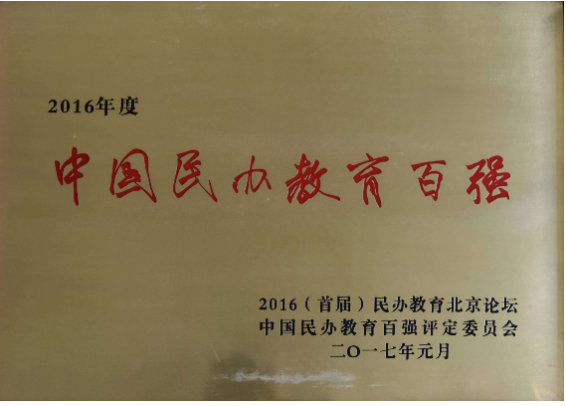 2016年度
中国民办教育百强
2016（首届）民办教育北京论坛
中国民办教育百强评定委员会
二〇一七年元月